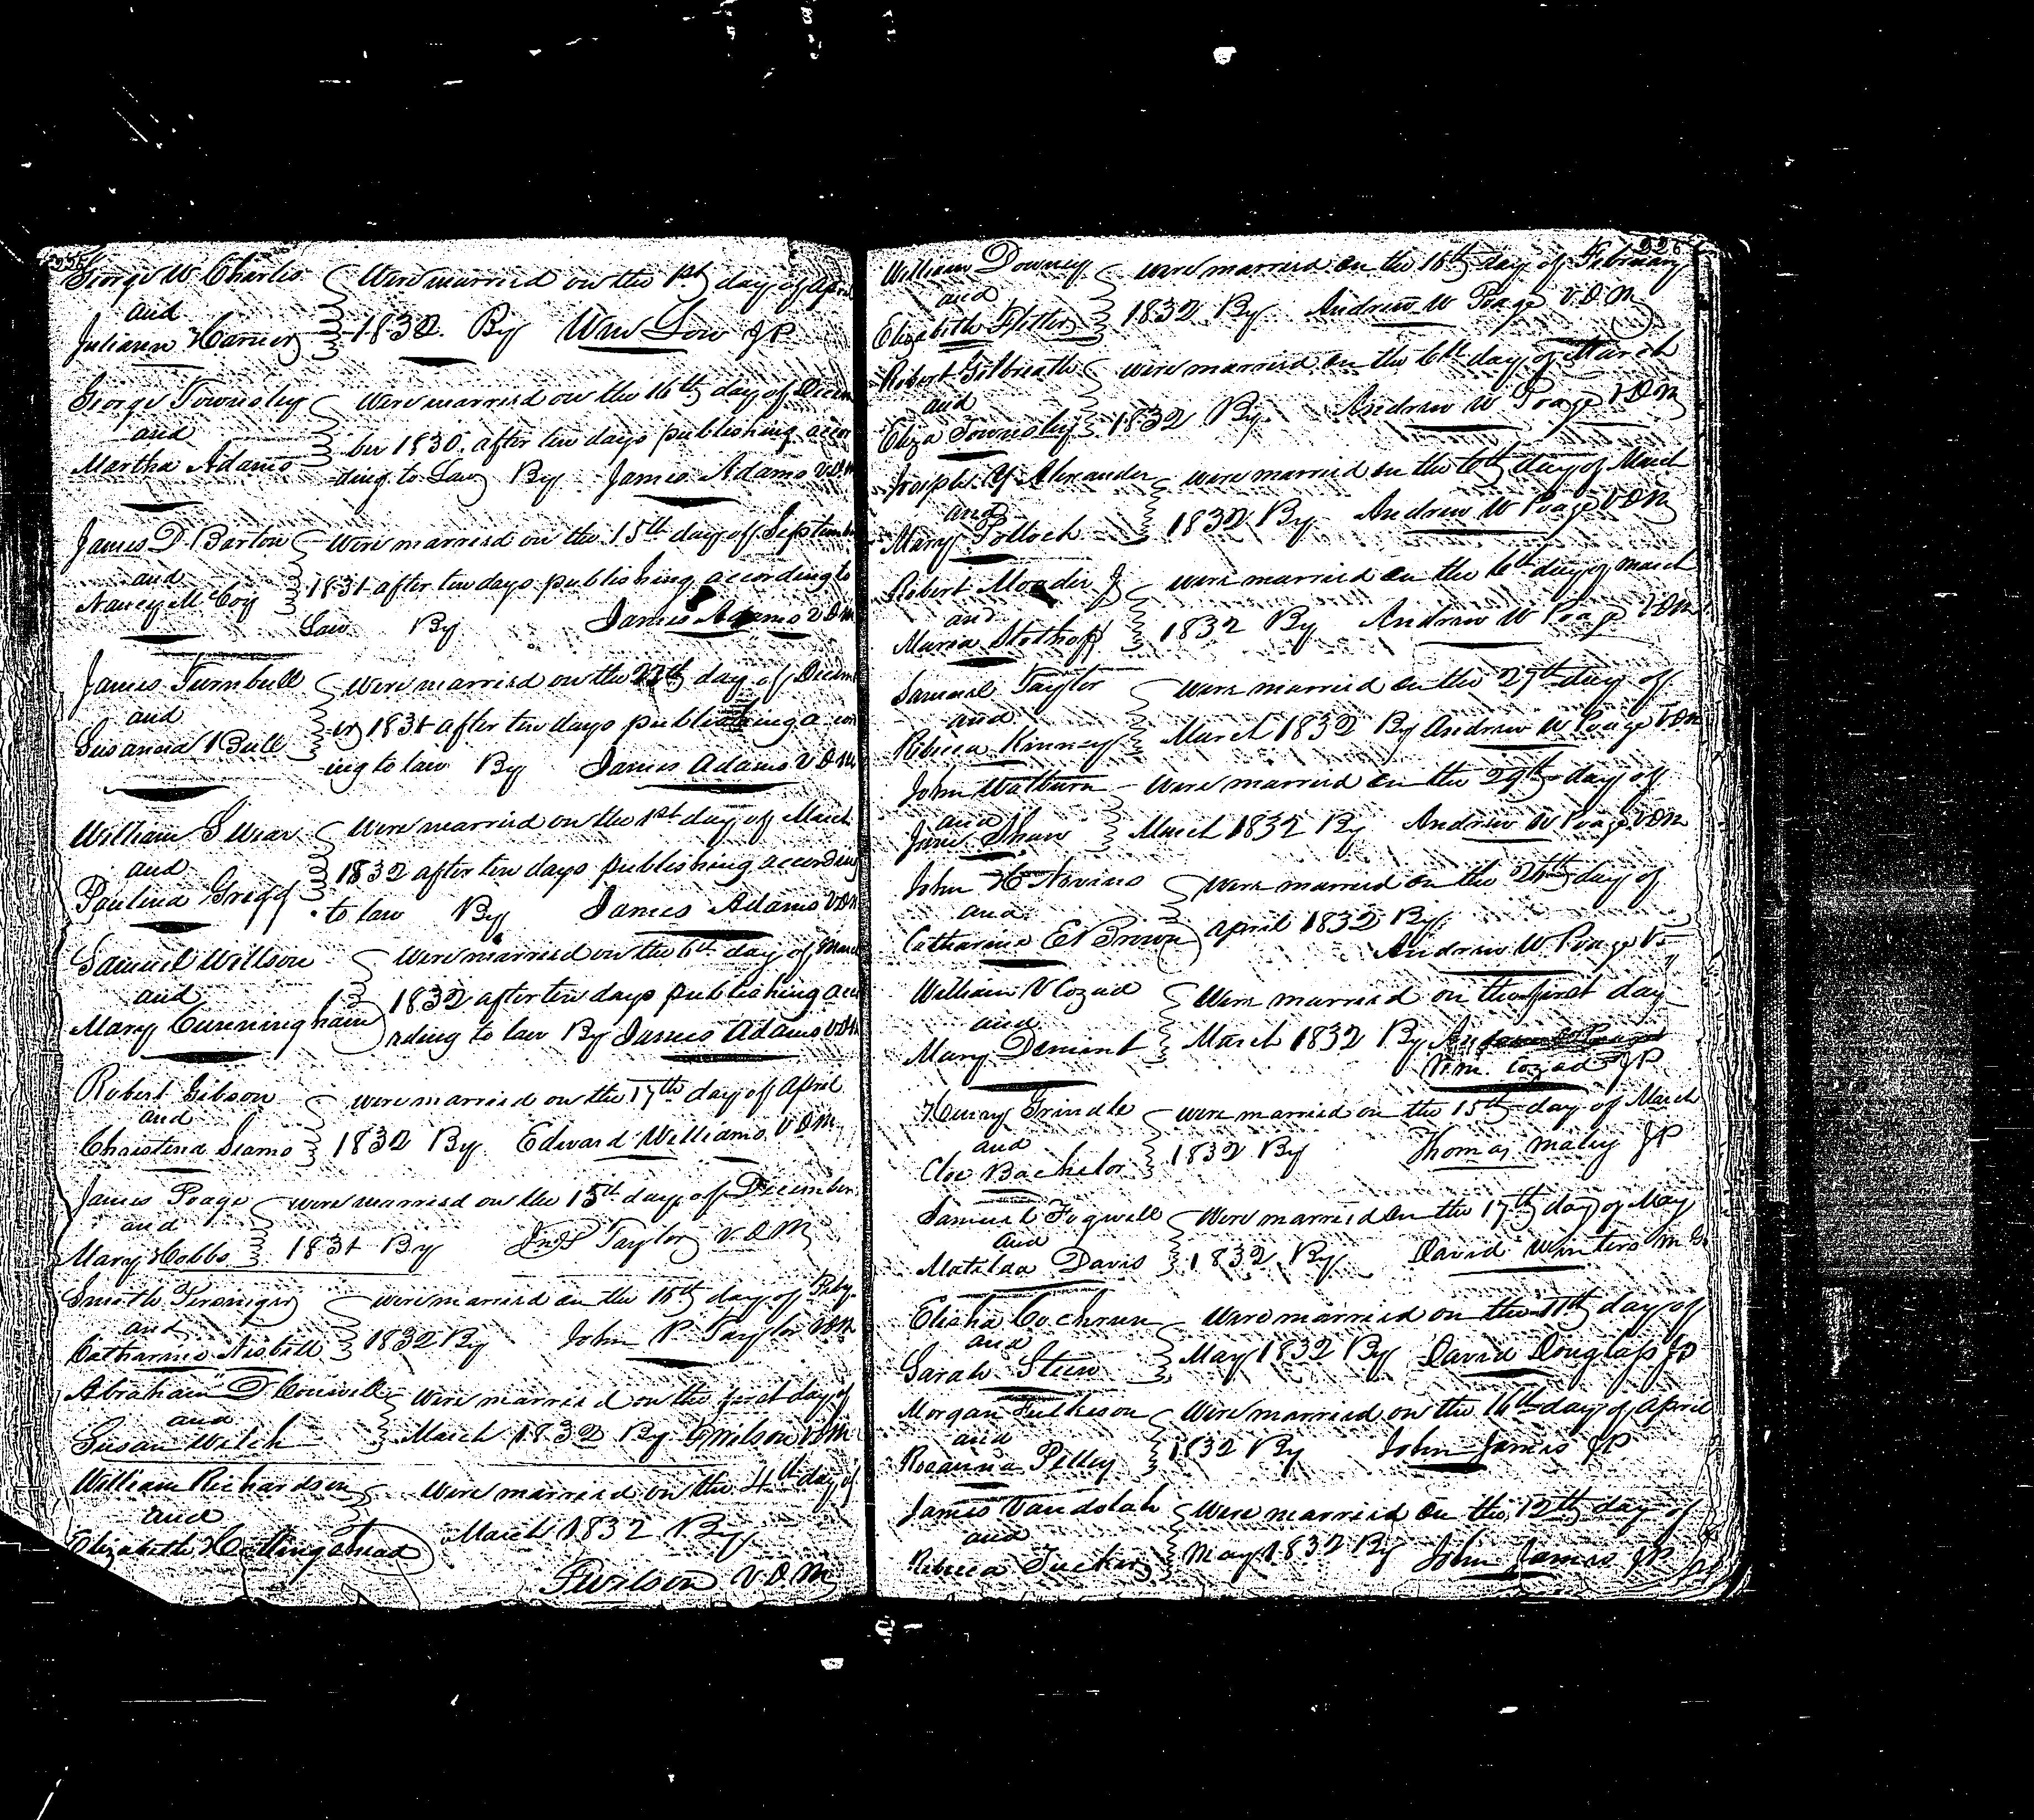 225
George W Charles Were married on the 1st day of April
and
Juliann Harner 1832. By Wm Low JP
George Townsley Were married on the 16th day of Decem
and ber 1830. after ten days publishing accor
Martha Adams -ding to Law By James Adams VDM
James D Barton Were married on the 15th day of September
and 1831 after ten days publishing according to
Nancy McCoy Law By James Adams VDM
James Turnbull Were married on the day of Decem
and er 1831 after ten days publishing a
Susanna Bull -ing to law By James Adams VDM
William S Wear Were married on the 1st day of March
and 1832 after ten days publishing according
Paulina Gregg to law By James Adams VDM
Samuel Willson Were married on the 6th day of March
and 1832 after ten days publishing acco
Mary Cunningham rding to law By James Adams VDM
Robert Gibson were married on the 17th day of April
and
Christena Siams 1832 By Edward Williams VDM
James Poage were married on the 15th day of December
and
Mary Hobbs 1831 By Jno P Taylor V.D.M
Smith Persinger were married on the 16th day of Feby
and
Catharine Nisbitt 1832 By John P. Taylor VDM
Abraham D Conwell were married on the first day of
and
Susan Welch March 1832 By F Wilson VDM
William Richardson Were married on the 4th day of
and March 1832 By
Elizabeth Hollingstead
F Wilson V.D.M
226
William Downey were married on the 16th day of February
and
Elizabeth Fletter 1832 By Andrew W Poage VDM
Robert Gilbreath were married on the 6th day of March
and
Eliza Townsley 1832 By Andrew W Poage VDM
Joseph Y Alexander were married on the 6th day of March
and
Mary Pollock 1832 By Andrew W Poage VDM
Robert Moodie J were married on the 6th day of March
and
Maria Stethoff 1832 By Andrew W Poage VDM
Samuel Taylor were married on the 27th day of
and
Rebecca Kinney March 1832 By Andrew W Poage VDM
John Watburn Were married on the 29th day of
and
Jane Shaw March 1832 By Andrew W Poage VDM
John H Nevins were married on the 26th day of
and
Catharine E Brown April 1832 By
Andrew W Poage V
William V Cozad Were married on the first day
and
Mary Dement March 1832 By
Wm. Cozad JP
Henry Grindle were married on the 15th day of March
and
Cloe Bachelor 1832 By Thomas Maley JP
Samuel Fogwell Were married on the 17th day of May
and
Matilda Davis 1832 By David Winters M G
Elisha Cochrun Were married on the 11th day of
and
Sarah Steen May 1832 By David Douglass JP
Morgan Fulkison Were married on the 16th day of April
and
Rosanna Pelley 1832 By John James JP
James Vandolah Were married on the 12th day of
and
Rebecca Tucker May 1832 By John James JP